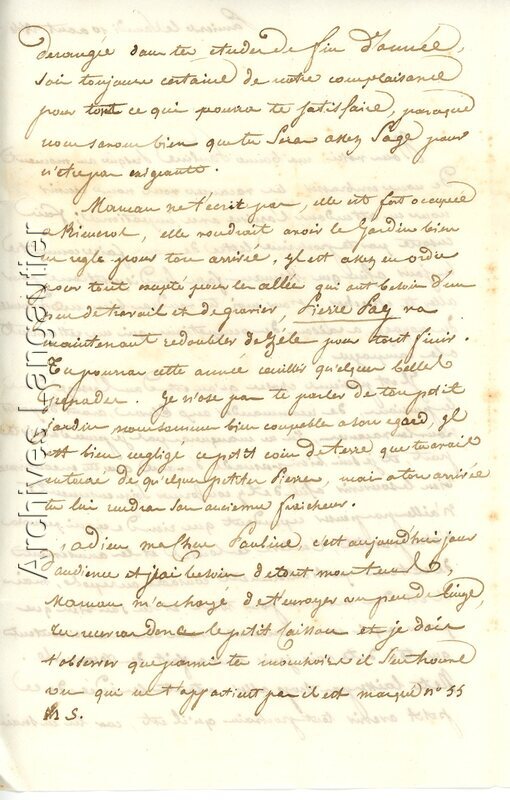 derangée dans tes etudes de fin d'année,
sois toujours certaine de notre complaisance
pour tout ce qui pourra te satisfaire, parceque
nous savons bien que tu seras assez sage pour
n'être pas exigeante.
Maman ne t'écrit pas, elle est fort occupée
a , elle voudrait avoir le Jardin bien
en regle pour ton arrivée, Il est assez en ordre
pour tout excepté pour les allées qui ont besoin d'un
peu de travail et de gravier, Pierre Pag va
maintenant redoubler de zéle pour tout finir.
Tu pourras cette année cueillir quelques belles
Grenades. Je n'ose pas te parler de ton petit
jardin nous sommes bien coupables a son egard, Il
est bien negligé ce petit coin de terre que tu avais
entouré de quelques petites Pierres, mais a ton arrivée
tu lui rendras son ancienne fraicheur.
adieu ma chere Pauline c'est aujourd'hui jour
d'audience et j'ai besoin de tout mon tems
Maman m'a chargé de t'envoyer un peu de linge,
tu recevras donc le petit caisson et je dois
t'observer que parmi tes mouchoirs il s'en trouve
un qui ne t'appartient pas il est marqué n° 55
M S.
Archives Langautier